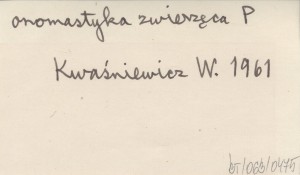 onomastyka zwierzęca P
Kwaśniewicz W. 1961
BT/066/0475